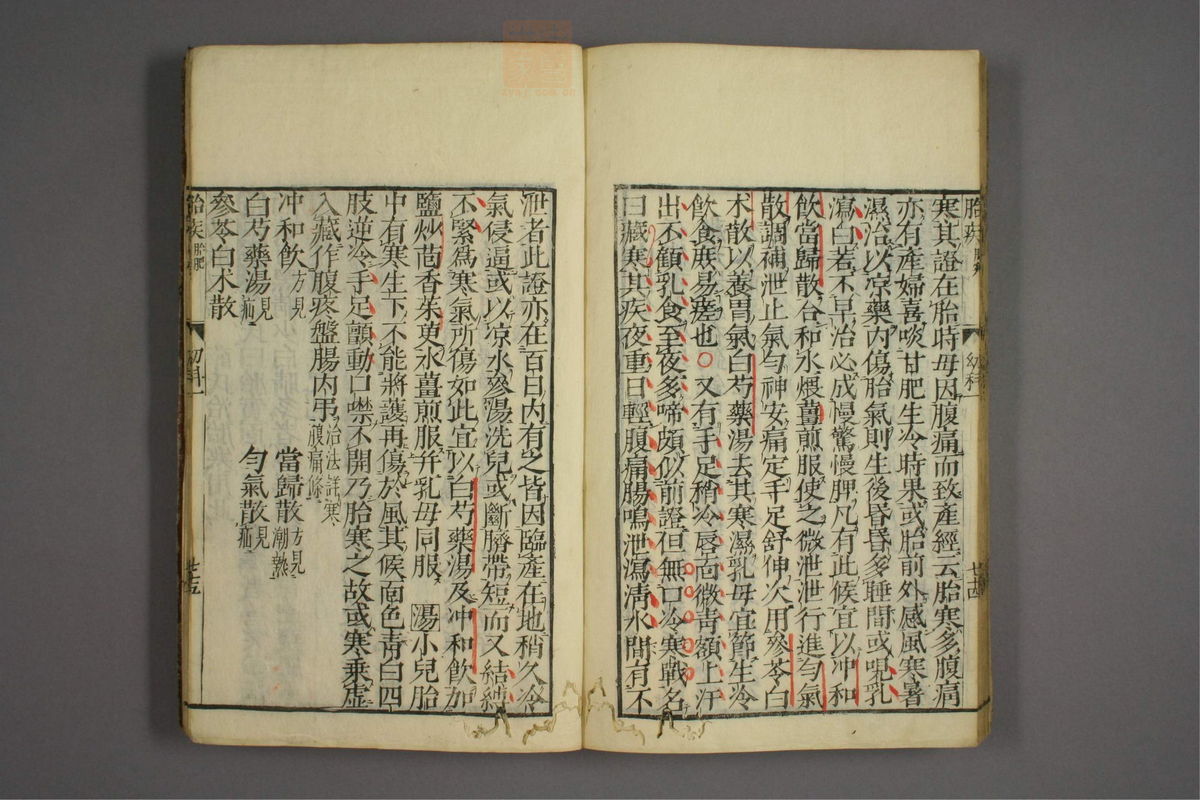 寒其證在胎時母因腹痛而致產經云胎寒多腹痛
亦有產婦喜啖甘肥生冷時果或胎前外感風寒暑
濕治以凉藥內傷胎氣則生後昏昏多睡間或哯乳
瀉白若不早治必成慢驚慢脾凡有此候宜以冲和
飲當歸散合和水煨薑煎服使之微泄泄行進勻氣
散調補泄止氣勻神安痛定手足舒伸次用參苓白
术散以養胃氣白芍藥湯去其寒濕乳母宜節生冷
飲食庶易瘥也○又有手足稍冷唇面微青額上汗
出不顧乳食至夜多啼頗似前證但無口冷寒戰名
曰臟寒其疾夜重日輕腹痛腸鳴泄瀉清水間有不
胎疾
幼科一
廿四
泄者此證亦在百日內有之皆因臨產在地稍久冷
氣侵逼或以凉水參湯洗兒或斷臍帶短而又結縛
不緊為寒氣所傷如此宜以白芍藥湯及冲和飲加
鹽炒茴香茱萸水薑煎服幷乳母同服 湯小兒胎
中有寒生下不能將護再傷於風其候面色青白四
肢逆冷手足顫動口噤不開乃胎寒之故或寒乘虛
入藏作腹疼盤腸內弔治法詳寒腹痛條
冲和飲方見 當歸散方見潮熱
白芍藥湯見疝 勻氣散見疝
參苓白术散
胎疾
幼科一
廿五